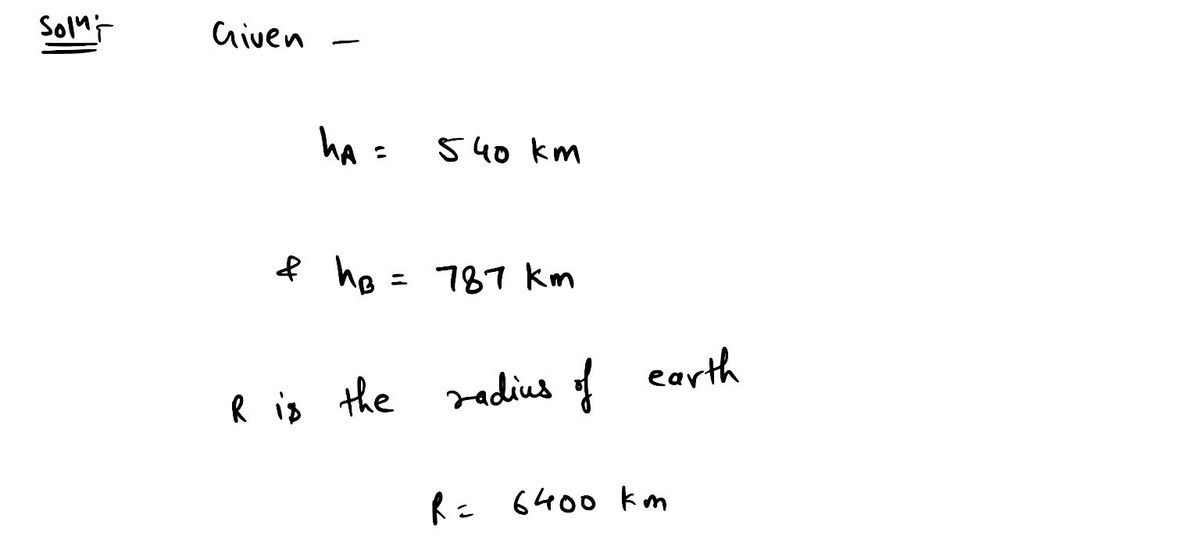 Solⁿ:- Given –
hA = 540 km
& hB = 787 km
R is the radius of earth
R = 6400 km